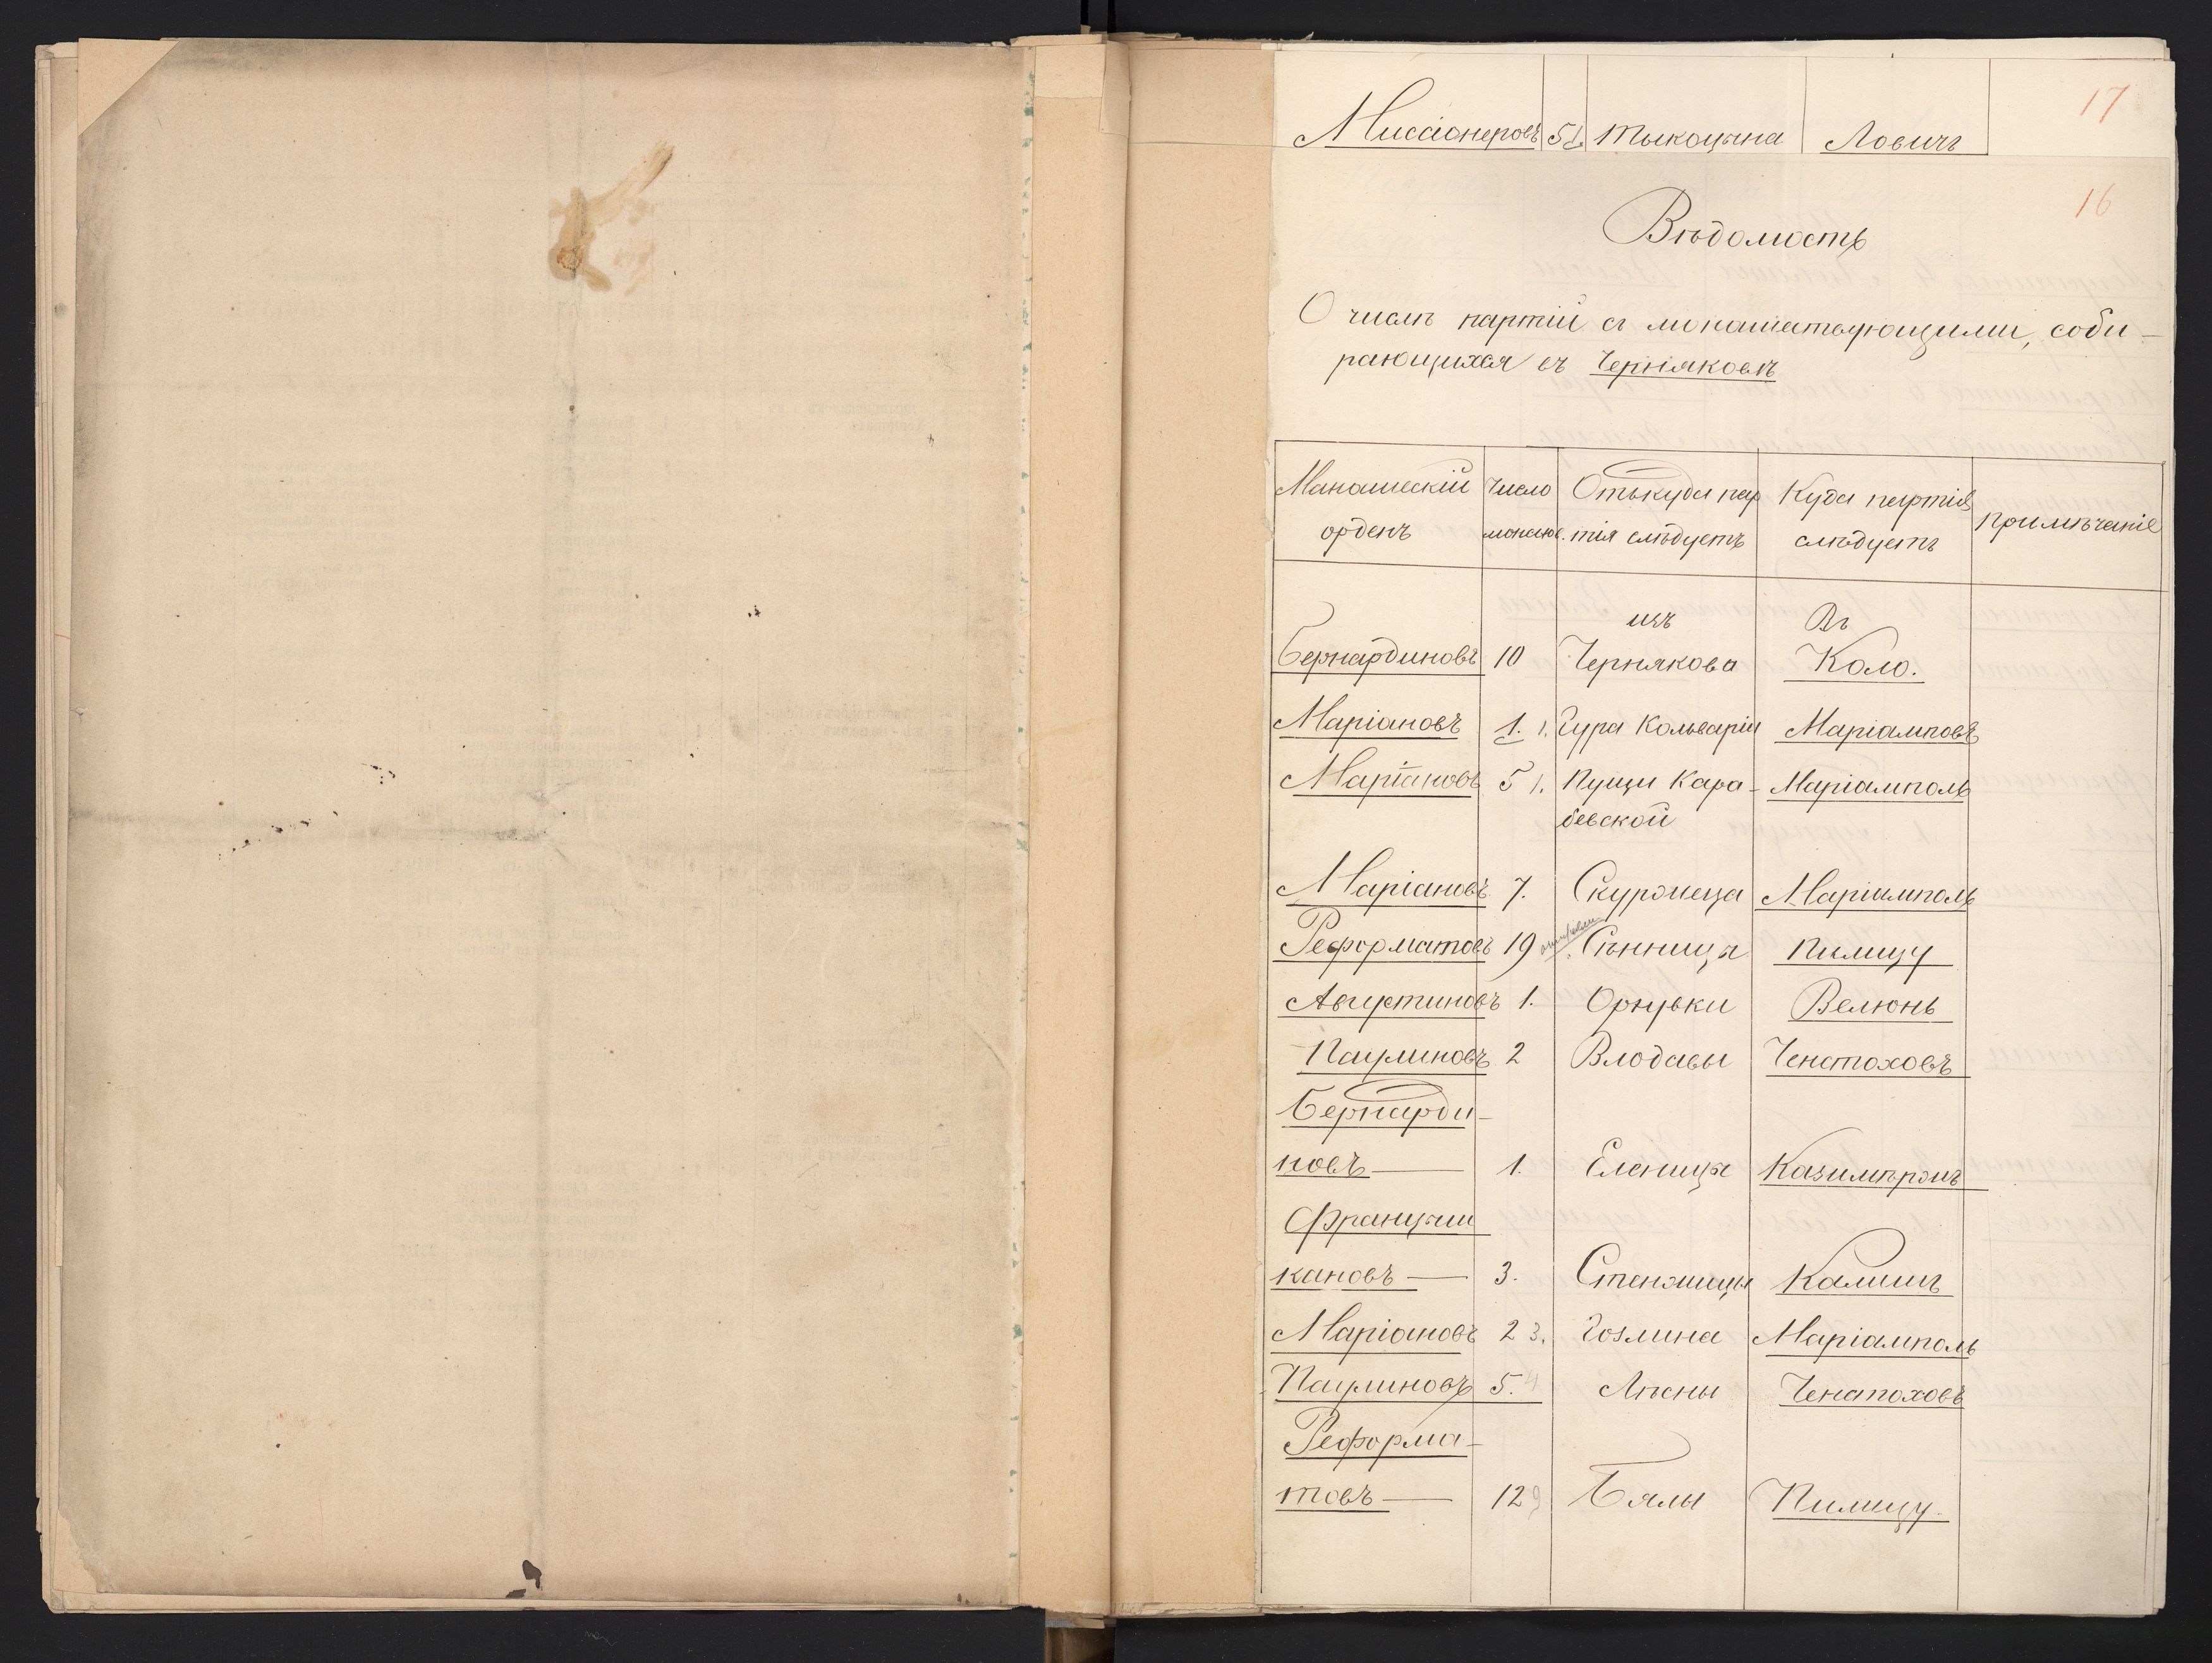 17
Миссіонеровъ 51. Тыкоцына Ловичъ
16
Вѣдомость
О числѣ партій съ монашествующими, соби-
рающихся въ Черняковѣ
Манашескій Число Отькуда пар Куда партія примѣчаніе
орденъ тія слѣдуетъ слѣдуетъ
изъ Въ
Бернардиновъ 10 Чернякова Коло.
Маріановъ 1. 1. Гура Кольваріи Маріамповъ
Маріановъ 5 1. Пущи Кара- Маріамполь
бевской
Маріановъ 7. Скурзнеца Маріамполь
Реформатовъ 19 Сѣнницы Пилицу
Августиновъ 1. Орнувки Велюнь
Паулиновъ 2 Влодавы Ченстоховъ
Бернарди-
новъ — 1. Еленицы Казимѣржъ
Францыш
кановъ — 3. Стенжицы Калишъ
Маріановъ 2 3. Гозлина Маріамполь
Паулиновъ 5. 4 Лѣсны Ченстоховъ
Реформа-
товъ — 12 9 Бялы Пилицу.